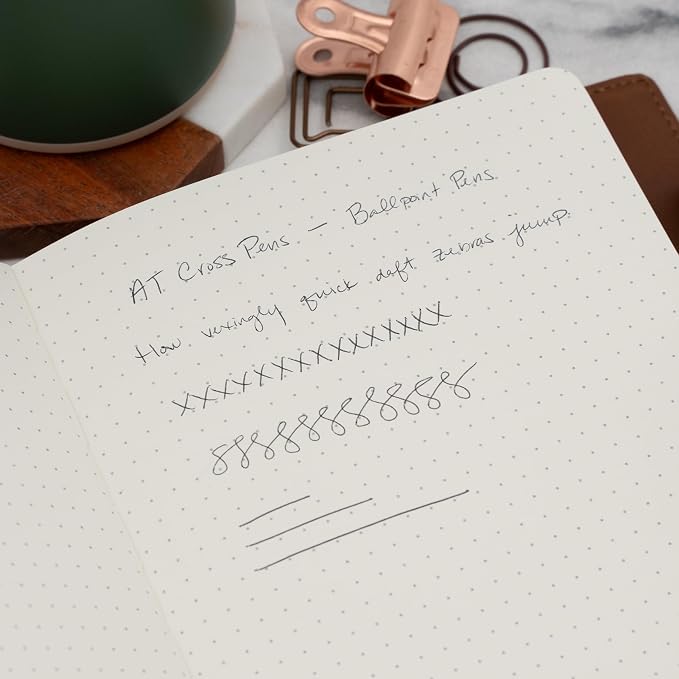 AT Cross Pens — Ballpoint Pens.
How vexingly quick daft zebras jump.
XXXXXXXXXXXXXXXX
88888888888